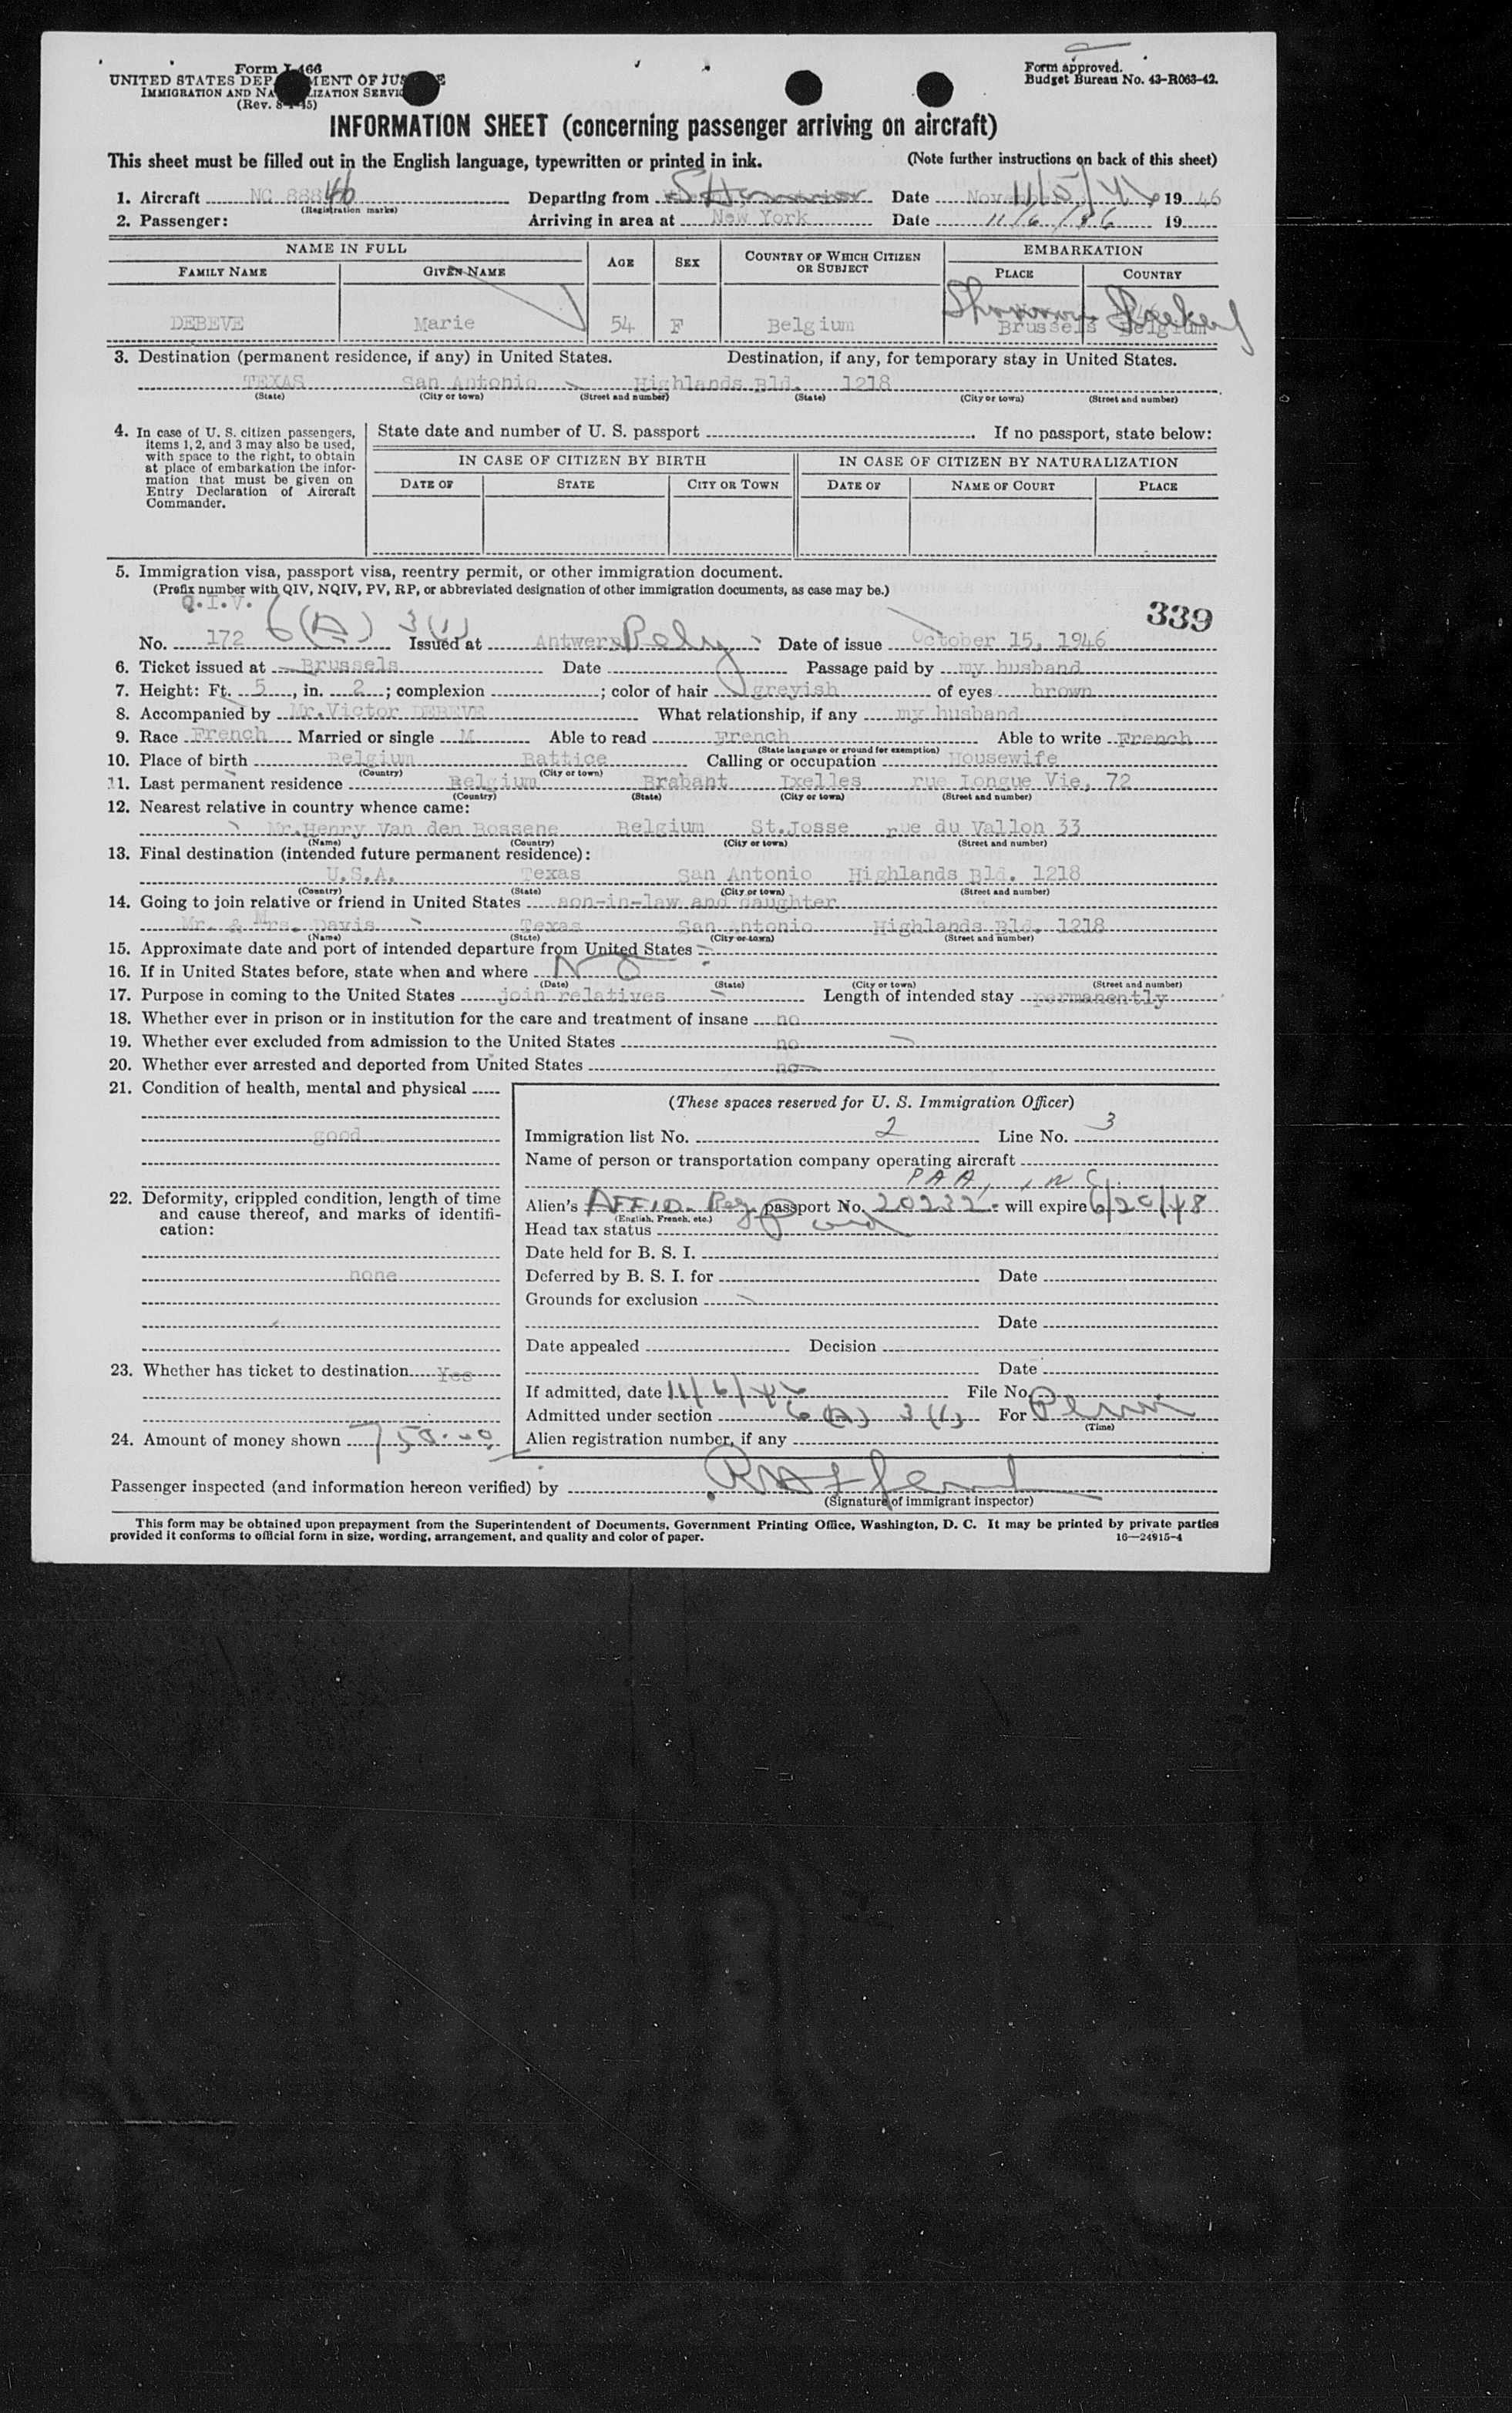 Form I-466
UNITED STATES DEPARTMENT OF JUSTICE
IMMIGRATION AND NATURALIZATION SERVICE
(Rev. 8-1-45)
Form approved.
Budget Bureau No. 43-R063-42.
INFORMATION SHEET (concerning passenger arriving on aircraft)
This sheet must be filled out in the English language, typewritten or printed in ink. (Note further instructions on back of this sheet)
1. Aircraft NC 888 46 Departing from Date Nov 11/5/46 19 46
(Registration marks)
2. Passenger: Arriving in area at New York Date 11/6/46 19
NAME IN FULL AGE SEX COUNTRY OF WHICH CITIZEN OR SUBJECT EMBARKATION
FAMILY NAME GIVEN NAME PLACE COUNTRY
DEBEVE Marie 54 F Belgium Brussels Belgium
3. Destination (permanent residence, if any) in United States. Destination, if any, for temporary stay in United States.
TEXAS San Antonio Highlands Bld. 1218
(State) (City or town) (Street and number) (State) (City or town) (Street and number)
4. In case of U. S. citizen passengers, items 1, 2, and 3 may also be used, with space to the right, to obtain at place of embarkation the information that must be given on Entry Declaration of Aircraft Commander.
State date and number of U. S. passport If no passport, state below:
IN CASE OF CITIZEN BY BIRTH IN CASE OF CITIZEN BY NATURALIZATION
DATE OF STATE CITY OR TOWN DATE OF NAME OF COURT PLACE
5. Immigration visa, passport visa, reentry permit, or other immigration document.
(Prefix number with QIV, NQIV, PV, RP, or abbreviated designation of other immigration documents, as case may be.)
Q.I.V. 339
No. 172 6(A) 3(1) Issued at Antwerp Belg Date of issue October 15, 1946
6. Ticket issued at Brussels Date Passage paid by my husband
7. Height: Ft. 5, in. 2; complexion ; color of hair greyish of eyes brown
8. Accompanied by Mr.Victor DEBEVE What relationship, if any my husband
9. Race French Married or single M Able to read French Able to write French
(State language or ground for exemption)
10. Place of birth Belgium Battice Calling or occupation Housewife
(Country) (City or town)
11. Last permanent residence Belgium Brabant Ixelles rue Longue Vie, 72
(Country) (State) (City or town) (Street and number)
12. Nearest relative in country whence came:
Mr.Henry Van den Bossene Belgium St.Josse rue du Vallon 33
(Name) (Country) (City or town) (Street and number)
13. Final destination (intended future permanent residence):
U.S.A. Texas San Antonio Highlands Bld. 1218
(Country) (State) (City or town) (Street and number)
14. Going to join relative or friend in United States son-in-law and daughter
Mr. & Mrs. Davis Texas San Antonio Highlands Bld. 1218
(Name) (State) (City or town) (Street and number)
15. Approximate date and port of intended departure from United States
16. If in United States before, state when and where NO
(Date) (State) (City or town) (Street and number)
17. Purpose in coming to the United States join relatives Length of intended stay permanently
18. Whether ever in prison or in institution for the care and treatment of insane no
19. Whether ever excluded from admission to the United States no
20. Whether ever arrested and deported from United States no
21. Condition of health, mental and physical
good
22. Deformity, crippled condition, length of time and cause thereof, and marks of identification:
none
23. Whether has ticket to destination Yes
24. Amount of money shown 750.00
(These spaces reserved for U. S. Immigration Officer)
Immigration list No. 2 Line No. 3
Name of person or transportation company operating aircraft
PAA, INC.
Alien's AFFID. passport No. 20232 will expire 6/20/48
(English, French, etc.)
Head tax status
Date held for B. S. I.
Deferred by B. S. I. for Date
Grounds for exclusion
Date
Date appealed Decision
Date
If admitted, date 11/6/46 File No.
Admitted under section 6(A) 3(1) For Perm
(Time)
Alien registration number, if any
Passenger inspected (and information hereon verified) by
(Signature of immigrant inspector)
This form may be obtained upon prepayment from the Superintendent of Documents, Government Printing Office, Washington, D. C. It may be printed by private parties
provided it conforms to official form in size, wording, arrangement, and quality and color of paper. 16—24915-4